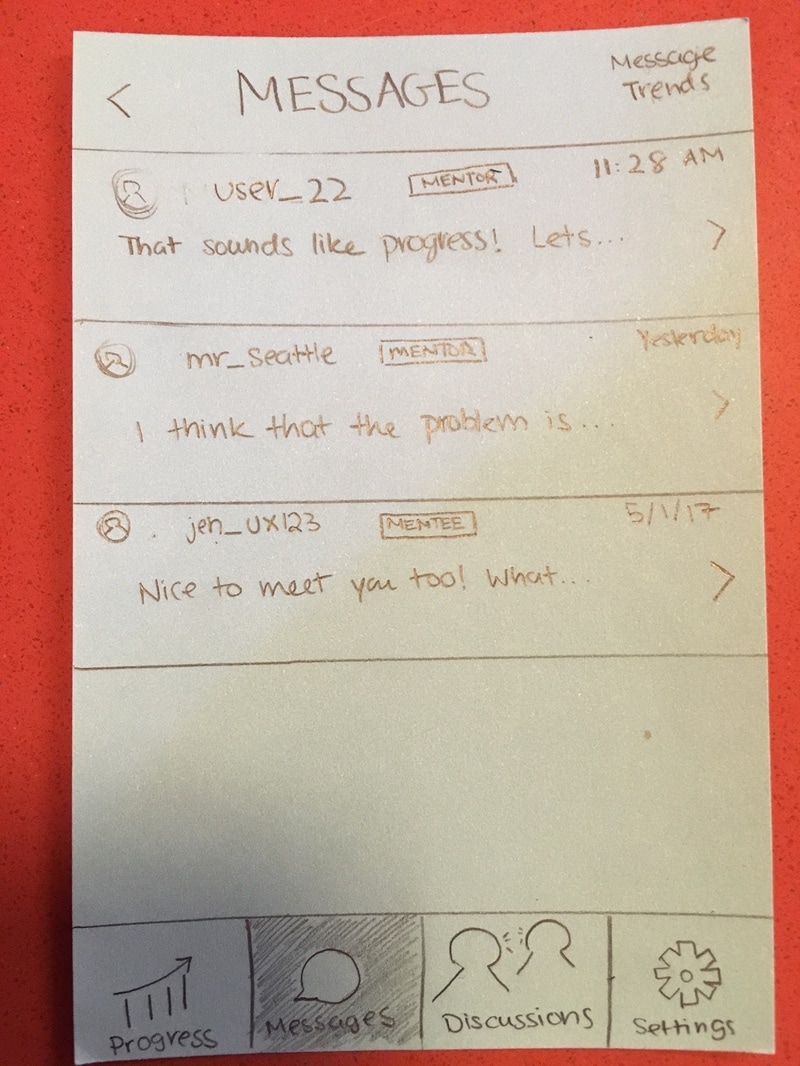 < MESSAGES Message Trends
user_22 MENTOR 11:28 AM
That sounds like progress! Lets... >
mr_seattle MENTOR Yesterday
I think that the problem is... >
jen_UX123 MENTEE 5/1/17
Nice to meet you too! What... >
Progress Messages Discussions Settings